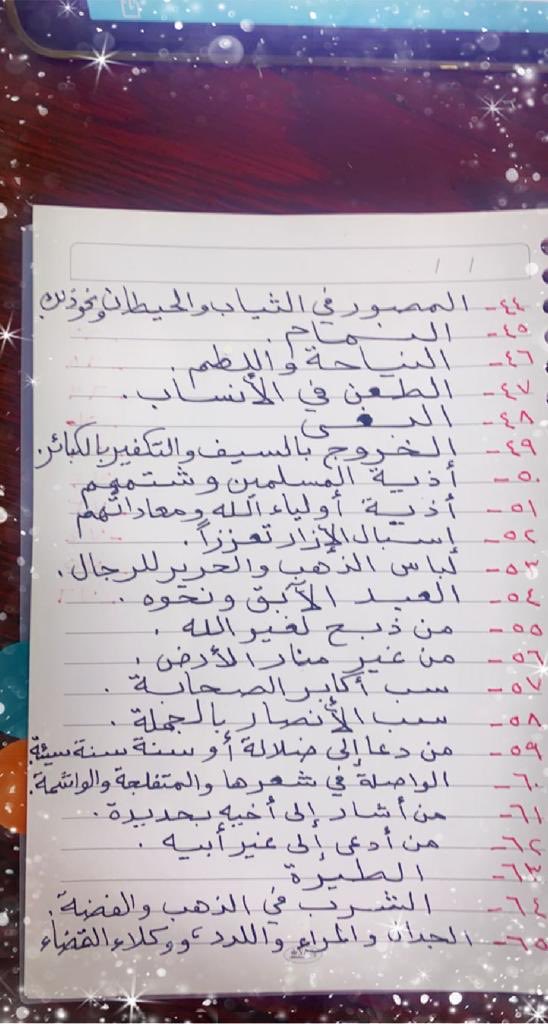 ٤٤- المصور في الثياب والحيطان ونحو ذلك
٤٥- النمام.
٤٦- النياحة واللطم.
٤٧- الطعن في الأنساب.
٤٨- البغى
٤٩- الخروج بالسيف والتكفير بالكبائر.
٥٠- أذية المسلمين وشتمهم
٥١- أذية أولياء الله ومعاداتهم
٥٢- إسبال الإزار تعززاً.
٥٣- لباس الذهب والحرير للرجال.
٥٤- العبد الآبق ونحوه.
٥٥- من ذبح لغير الله.
٥٦- من غير منار الأرض.
٥٧- سب أكابر الصحابة.
٥٨- سب الأنصار بالجملة.
٥٩- من دعا إلى ضلالة أو سنة سنة سيئة
٦٠- الواصلة في شعرها والمتفلجة والواشمة.
٦١- من أشار إلى أخيه بحديدة.
٦٢- من أدعى إلى غير أبيه.
٦٣- الطيرة
٦٤- الشرب في الذهب والفضة.
٦٥- الجدال والمراء واللدد، ووكلاء القضاء